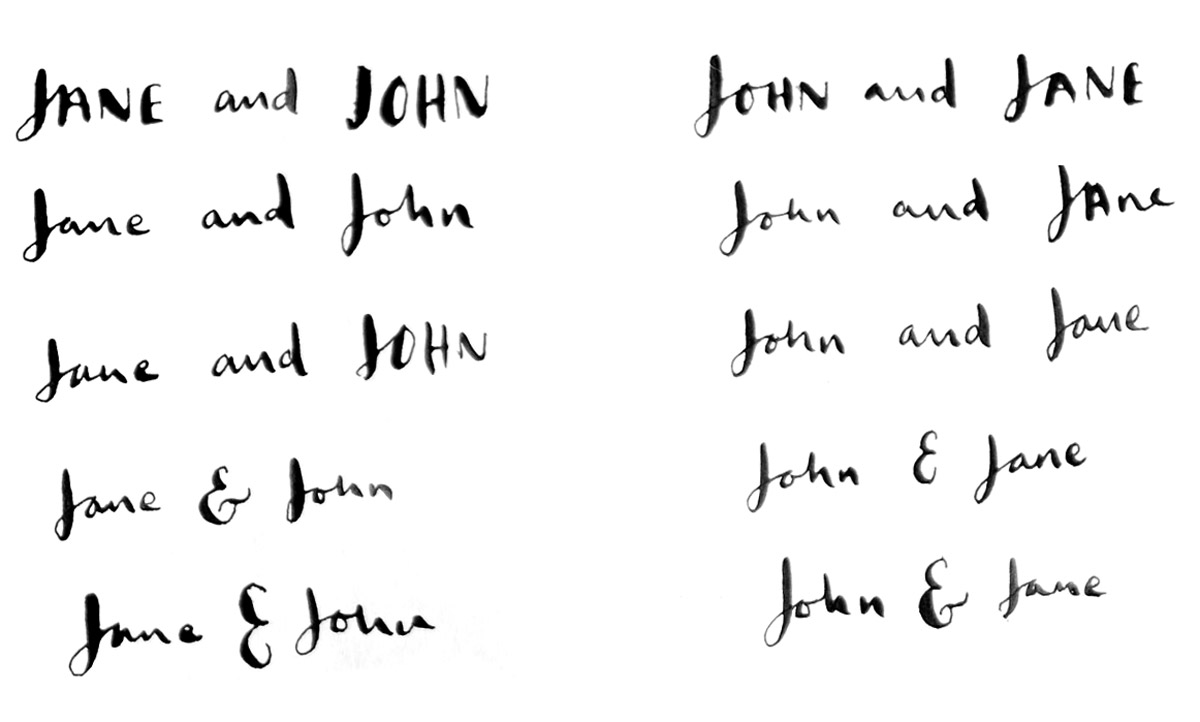 JANE and JOHN
Jane and John
Jane and JOHN
Jane & John
Jane & John
JOHN and JANE
John and JAne
John and Jane
John & Jane
John & Jane